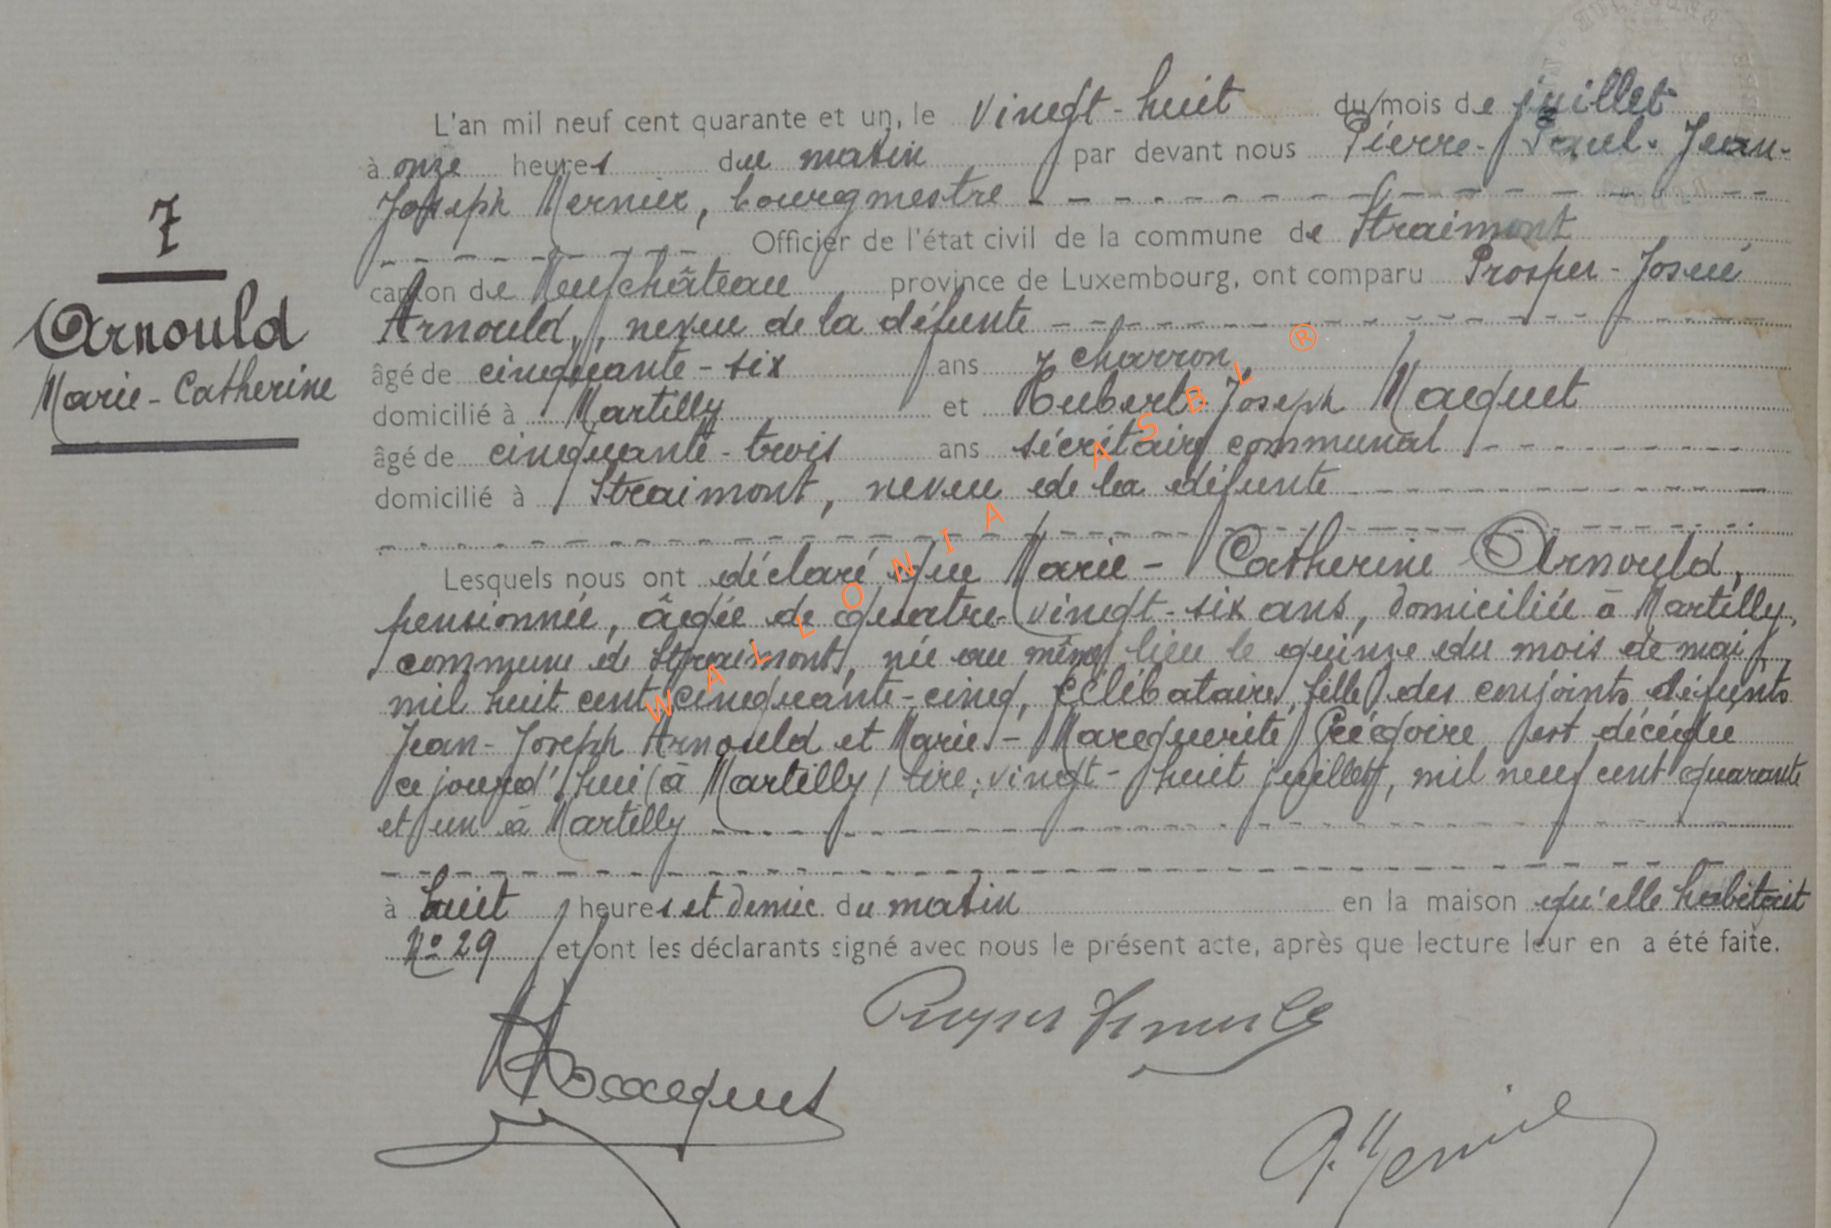 7
Arnould
Marie-Catherine
L'an mil neuf cent quarante et un, le vingt-huit du mois de juillet
à onze heures du matin par devant nous Pierre-Paul-Jean-
Joseph Mernier, bourgmestre
Officier de l'état civil de la commune de Straimont
canton de Neufchâteau province de Luxembourg, ont comparu Prosper-Josué
Arnould, neveu de la défunte
âgé de cinquante-six ans, charron,
domicilié à Martilly et Hubert-Joseph Maquet
âgé de cinquante-trois ans secrétaire communal
domicilié à Straimont, neveu de la défunte
Lesquels nous ont déclaré que Marie-Catherine Arnould,
pensionnée, âgée de quatre-vingt-six ans, domiciliée à Martilly,
commune de Straimont, née au même lieu le quinze du mois de mai
mil huit cent cinquante-cinq, célibataire, fille des conjoints défunts
Jean-Joseph Arnould et Marie-Marguerite Grégoire est décédée
ce jourd'hui à Martilly, lire; vingt-huit juillet, mil neuf cent quarante
et un à Martilly
à huit heures et demie du matin en la maison qu'elle habitait
N° 29 et ont les déclarants signé avec nous le présent acte, après que lecture leur en a été faite.
Prosper Arnould
HMaquet
P. Mernier
WALLONIA ASBL ®